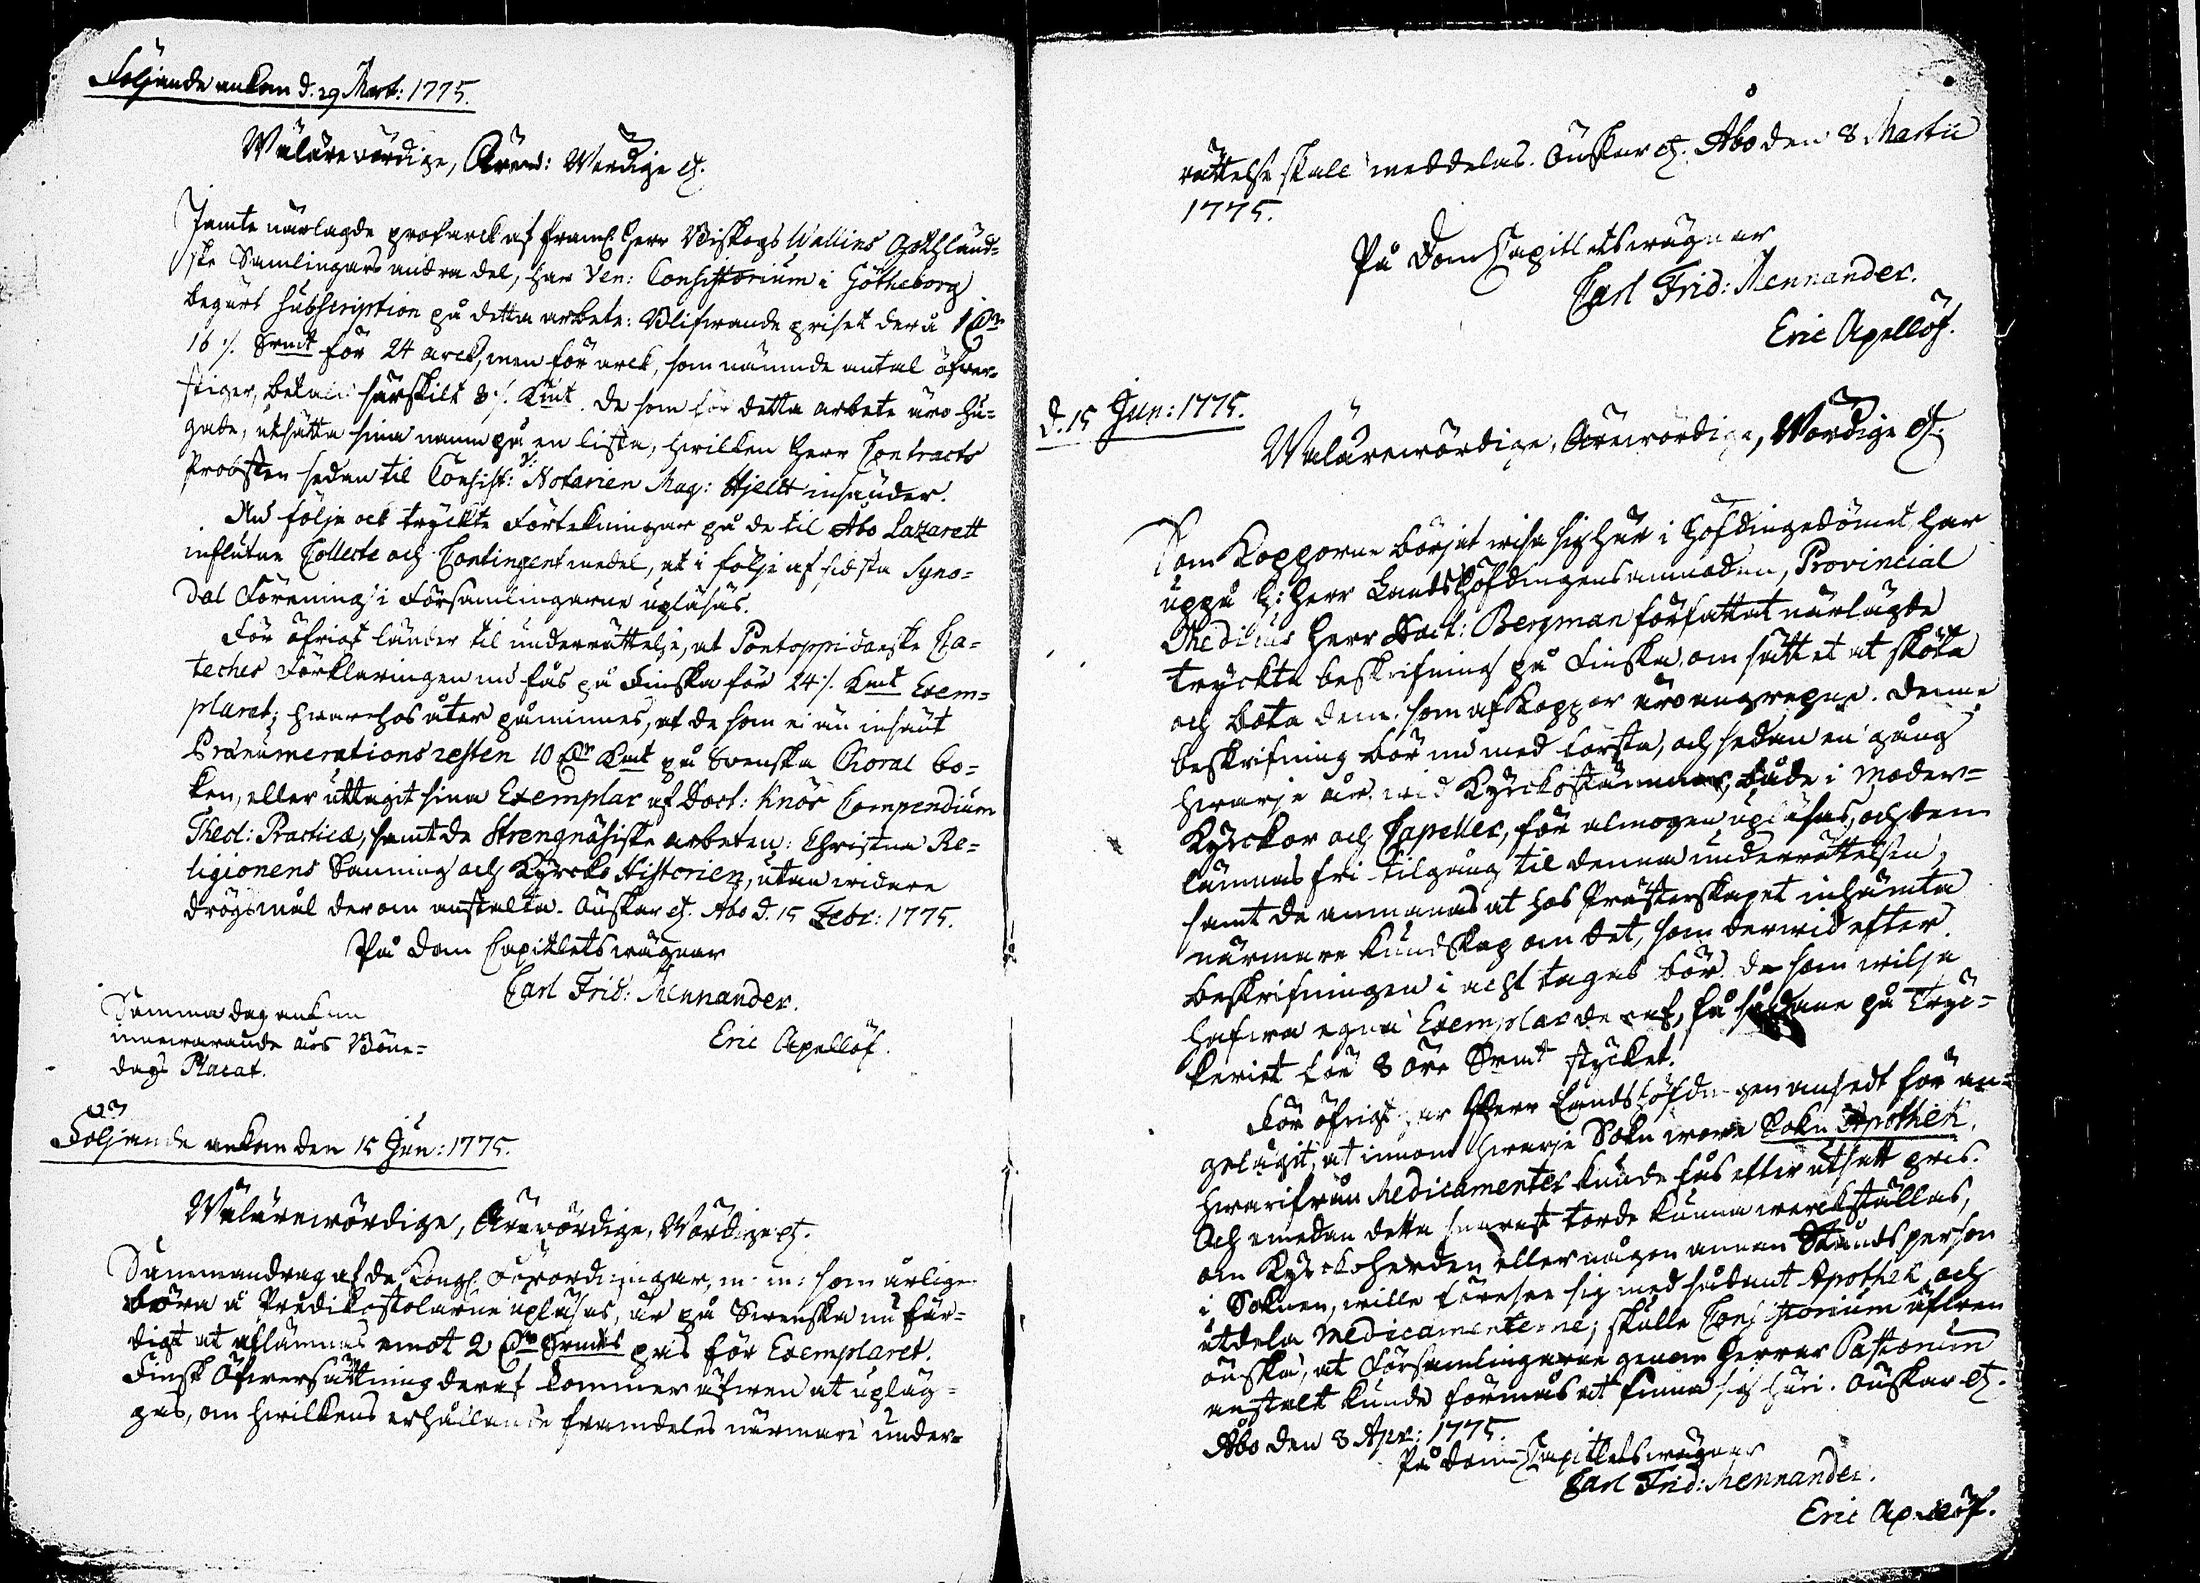 Följande ankom d. 29 Mart: 1775.
Wälärewördige, Ärew: Wördige etc.
Jemte närlagde profarck af framl. Herr Biskops Wallins Gothländ-
ske Samlingars andra del, har Ven: Consistorium i Götheborg
begärt Subscription på detta arbete: Blifwande priset derå 1 Dlr
16 /. Srmt för 24 arck, men för arck, som nämnde antal öfwer-
stiger, betalas särskilt 8 /. Kmt. De som för detta arbete äro hu-
gade, utsätta sina namn på en lista, hwilken Herr Contracts
Prosten sedan til Consist: V: Notarien Mag: Hjellt insänder.
Nu följa ock tryckte Förtekningar på de til Åbo Lazarett
influtne Collecte och Contingent medel, at i följe af sidsta Syno-
dal Förening i Församlingarne upläsas.
För öfrigt länder til underrättelse, at Pontoppidanske Ca-
teches Förklaringen nu fås på Finska för 24 /. Kmt Exem-
plaret; hwarhos åter påminnes, at de som ei än insänt
Prænumerations resten 10 Dlr Kmt på Swenska Choral bo-
ken, eller uttagit sina Exemplar af Doct: Knös Compendium
Theol: Practicæ, samt de Strengnäsiske arbeten: Christna Re-
ligionens Sanning och Kyrcko Historien, utan widare
drögsmål derom anstalta. Önskar etc. Åbo d. 15 Febr: 1775.
På Dom Capitlets wägnar
Carl Frid: Mennander.
Eric Apellöf.
Samma dag ankom
innewarande års Böne-
dags Placat.
Följande ankom den 15 Jun: 1775.
Wälärewördige, Ärewördige, Wördige etc.
Sammandrag af de Kongl. Förordningar, m. m: som årligen
böra å Predikostolarne upläsas, är på Swenska nu fär-
digt at aflämnas emot 2 Dlr Srmts pris för Exemplaret.
Finsk Öfwersättning deraf kommer äfwen at upläg-
gas, om hwilkens erhållande framdeles närmare under-
rättelse skall meddelas. Önskar etc. Åbo den 8 Martii
1775.
På Dom Capitlets wägnar
Carl Frid: Mennander.
Eric Apellöf.
d. 15 Jun: 1775.
Wälärewördige, Ärewördige, Wördige etc.
Som Kopporne börjat wisa sig här i Höfdingedömet, har
uppå H: Herr Landshöfdingens anmodan, Provincial
Medicus Herr Doct: Bergman författat närlagde
tryckta beskrifning på Finska, om sättet at sköta
och bota dem, som af Koppor äro angrepne. Denne
beskrifning bör nu med första, och sedan en gång
hwarje år wid Kyrckostämmor, både i Moder-
Kyrckor och Capeller, för almogen upläsas, och dem
lämnas fri tilgång til denna underrättelsen,
samt de anmanas at hos Prästerskapet inhämta
närmare kundskap om det, som derwid efter
beskrifningen i acht tagas bör. De som wilja
hafwa egna Exemplar deraf, få sådane på Tryc-
keriet för 8 öre Srmt stycket.
För öfrigt har H Herr Landshöfdingen ansedt för an-
gelägit, at innom hwarje Sokn wore Sokn Apothek,
hwarifrån Medicamenter kunde fås efter utsatt pris.
Och emedan detta snarast torde kunna werckställas,
om Kyrckoherden eller någon annan Stånds person
i Soknen, wille förese sig med sådant Apothek och
utdela Medicamenterne; skulle Consistorium äfwen
önska, at Församlingarne genom Herrar Pastorum
anstalt kunde förmås at finna sig häri. Önskar etc.
Åbo den 8 Apr: 1775.
På Dom Capitlets wägnar
Carl Frid: Mennander.
Eric Apellöf.